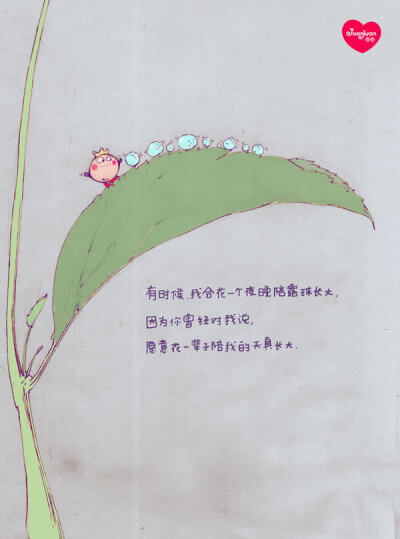 Juanjuan
有时候，我会花一个夜晚陪露珠长大，
因为你曾经对我说，
愿意花一辈子陪我的天真长大．